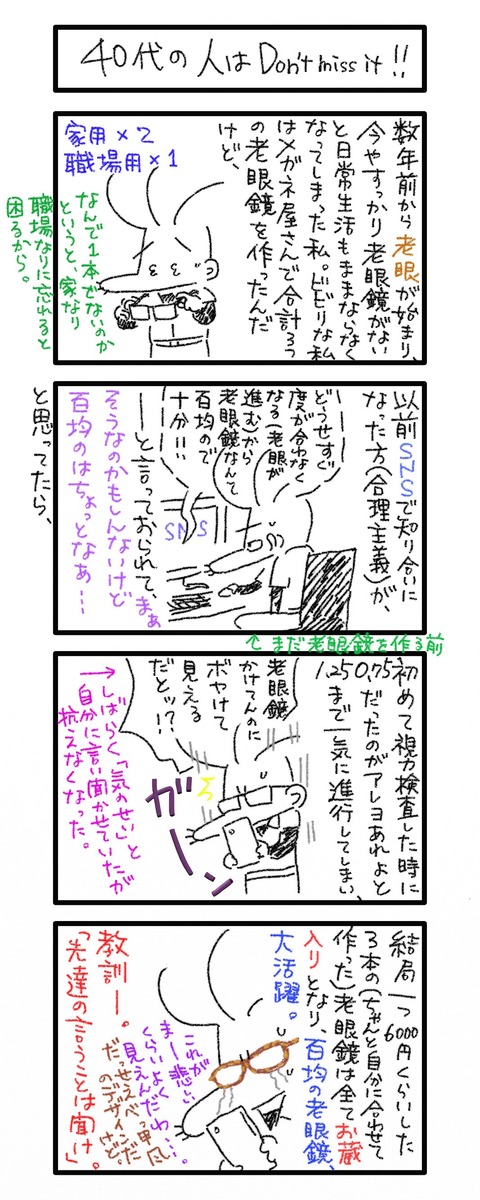 40代の人はDon't miss it!!
数年前から老眼が始まり、
今やすっかり老眼鏡がない
と日常生活もままならなく
なってしまった私。ビビりな私
はメガネ屋さんで合計3つ
の老眼鏡を作ったんだ
けど、
家用×2
職場用×1
なんで1本でないのか
というと、家なり
職場なりに忘れると
困るから。
以前SNSで知り合いに
なった方(合理主義)が、
どうせすぐ
度が合わなく
なる(老眼が
進む)から
老眼鏡なんて
百均ので
十分!!
SNS
ーと言っておられて、まぁ
そうなのかもしんないけど
百均のはちょっとなぁ…
と思ってたら、
↑まだ老眼鏡を作る前
初めて視力検査した時に
0.75だったのがアレヨあれよと
1.25まで一気に進行してしまい、
老眼鏡
かけてんのに
ボヤけて
見える
だとッ!?
ガーン
→しばらく「気のせい」と
自分に言い聞かせていたが
抗えなくなった。
結局一つ6000円くらいした
3本の(ちゃんと自分に合わせて
作った)老眼鏡は全てお蔵
入りとなり、百均の老眼鏡、
大活躍。
これが
まー悲しい
くらいよく
見えんだわ…。
だっせえべっ甲風
のデザインだ
けど。
教訓ー。
「先達の言うことは聞け」。